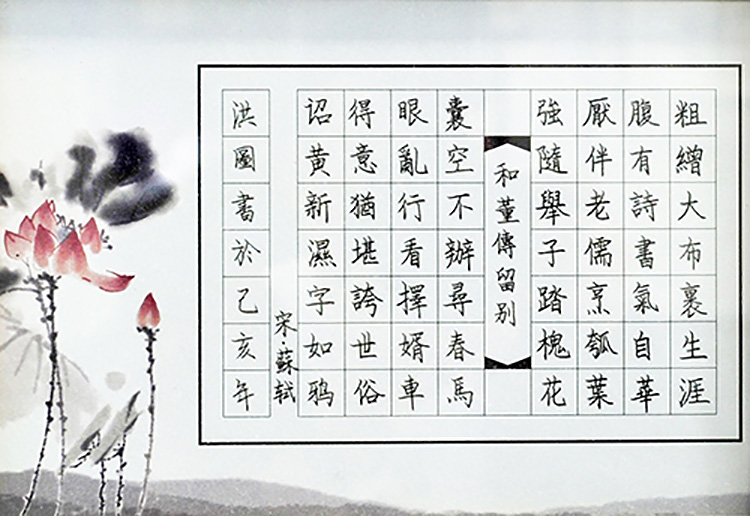 粗繒大布裹生涯
腹有詩書氣自華
厭伴老儒烹瓠葉
強隨舉子踏槐花
和董傳留别
囊空不辦尋春馬
眼亂行看擇婿車
得意猶堪誇世俗
詔黄新濕字如鸦
宋·蘇轼
洪圖書於己亥年